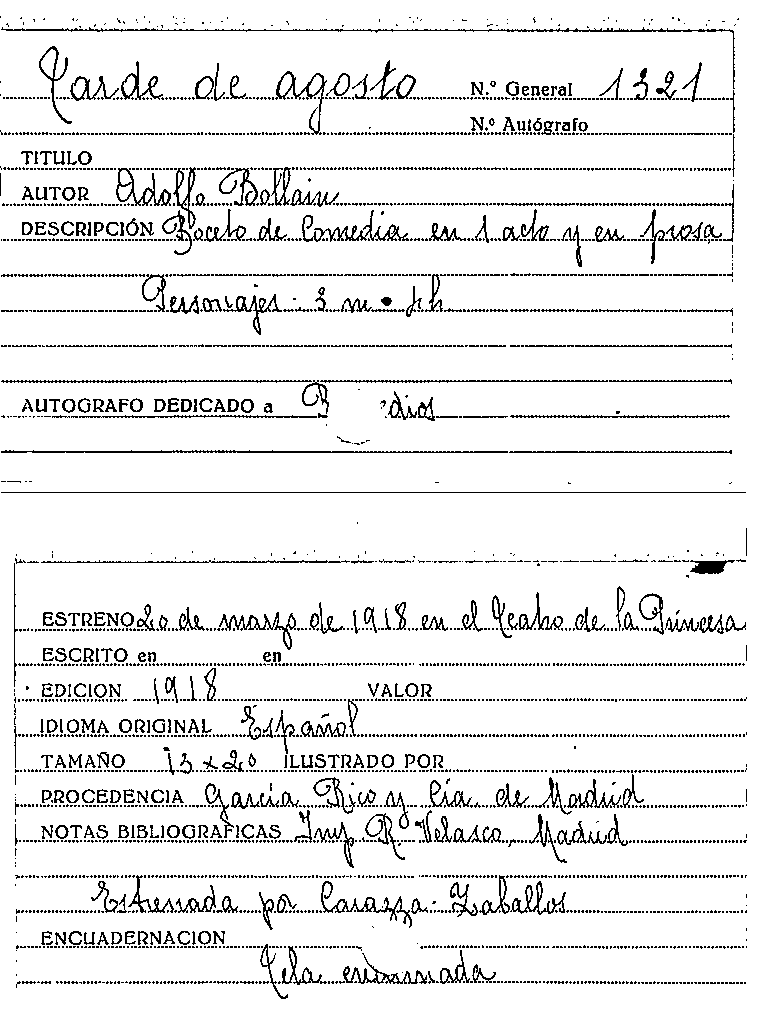 Tarde de agosto Nº General 1321
Nº Autógrafo
TITULO
AUTOR Adolfo Bollain
DESCRIPCIÓN Boceto de Comedia en 1 acto y en prosa
Personajes - 3 m • 4 h
AUTOGRAFO DEDICADO a
ESTRENO 20 de marzo de 1918 en el Teatro de la Princesa
ESCRITO en en
EDICION 1918 VALOR
IDIOMA ORIGINAL Español
TAMAÑO 13 x 20 ILUSTRADO POR
PROCEDENCIA García Rico y Cía. de Madrid
NOTAS BIBLIOGRAFICAS Imp. R. Velasco, Madrid
Estrenada por Carazza - Zaballos
ENCUADERNACION
Tela